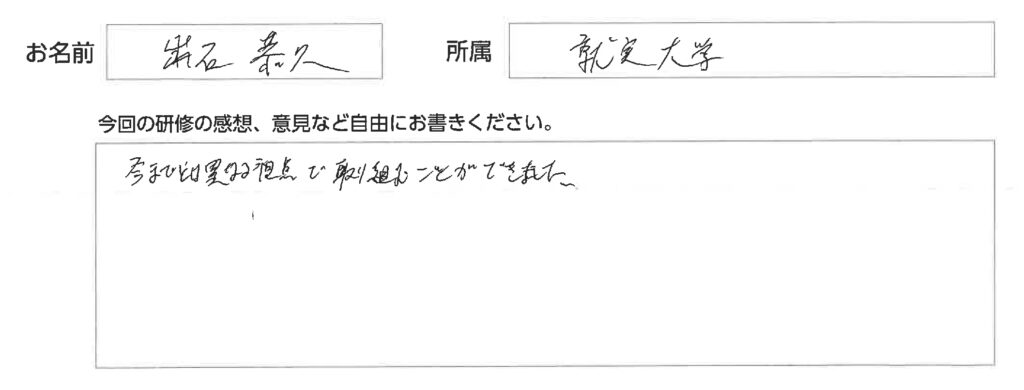 お名前 出石 恭久 所属 就実大学
今回の研修の感想、意見など自由にお書きください。
今までとは異なる視点で取り組むことができました。